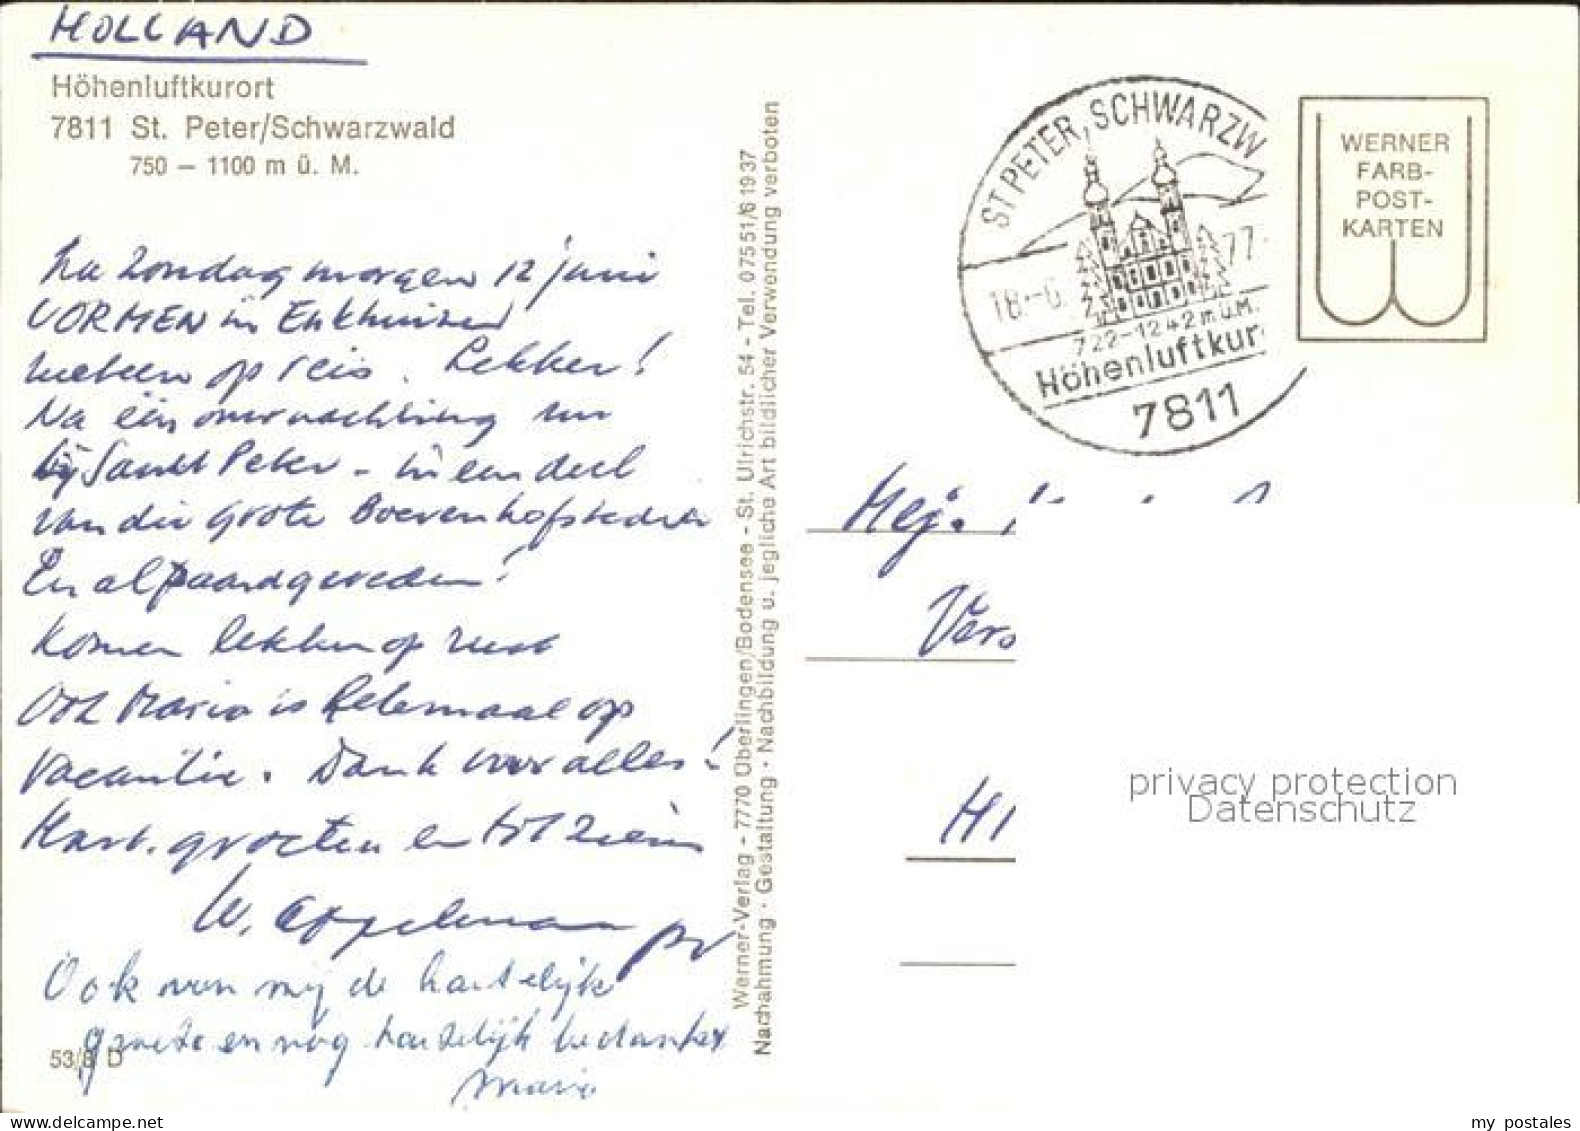 HOLLAND
Höhenluftkurort
7811 St. Peter/Schwarzwald
750 – 1100 m ü. M.
Na Zondag morgen 12 juni
VORMEN in Enkhuizen
op reis. Lekker!
Na één overnachting nu
bij Sankt Peter – in een deel
van die grote Boerenhofstede
En al paardgereden!
Komen lekker op rust
Ook Maria is helemaal op
vacantie. Dank voor alles!
Hart. groeten en tot ziens
W. Appelman pr
Ook van mij de hartelijke
groeten en nog hartelijk bedankt
Maria
53/8 D
Werner-Verlag - 7770 Überlingen/Bodensee - St. Ulrichstr. 54 - Tel. 07551/61937
Nachahmung · Gestaltung · Nachbildung u. jegliche Art bildlicher Verwendung verboten
ST PETER, SCHWARZW
18.-6. 77
722-1242 m ü.M.
Höhenluftkur
7811
WERNER
FARB-
POST-
KARTEN
Mej.
Vers
HI
privacy protection
Datenschutz
www.delcampe.net
my_postales